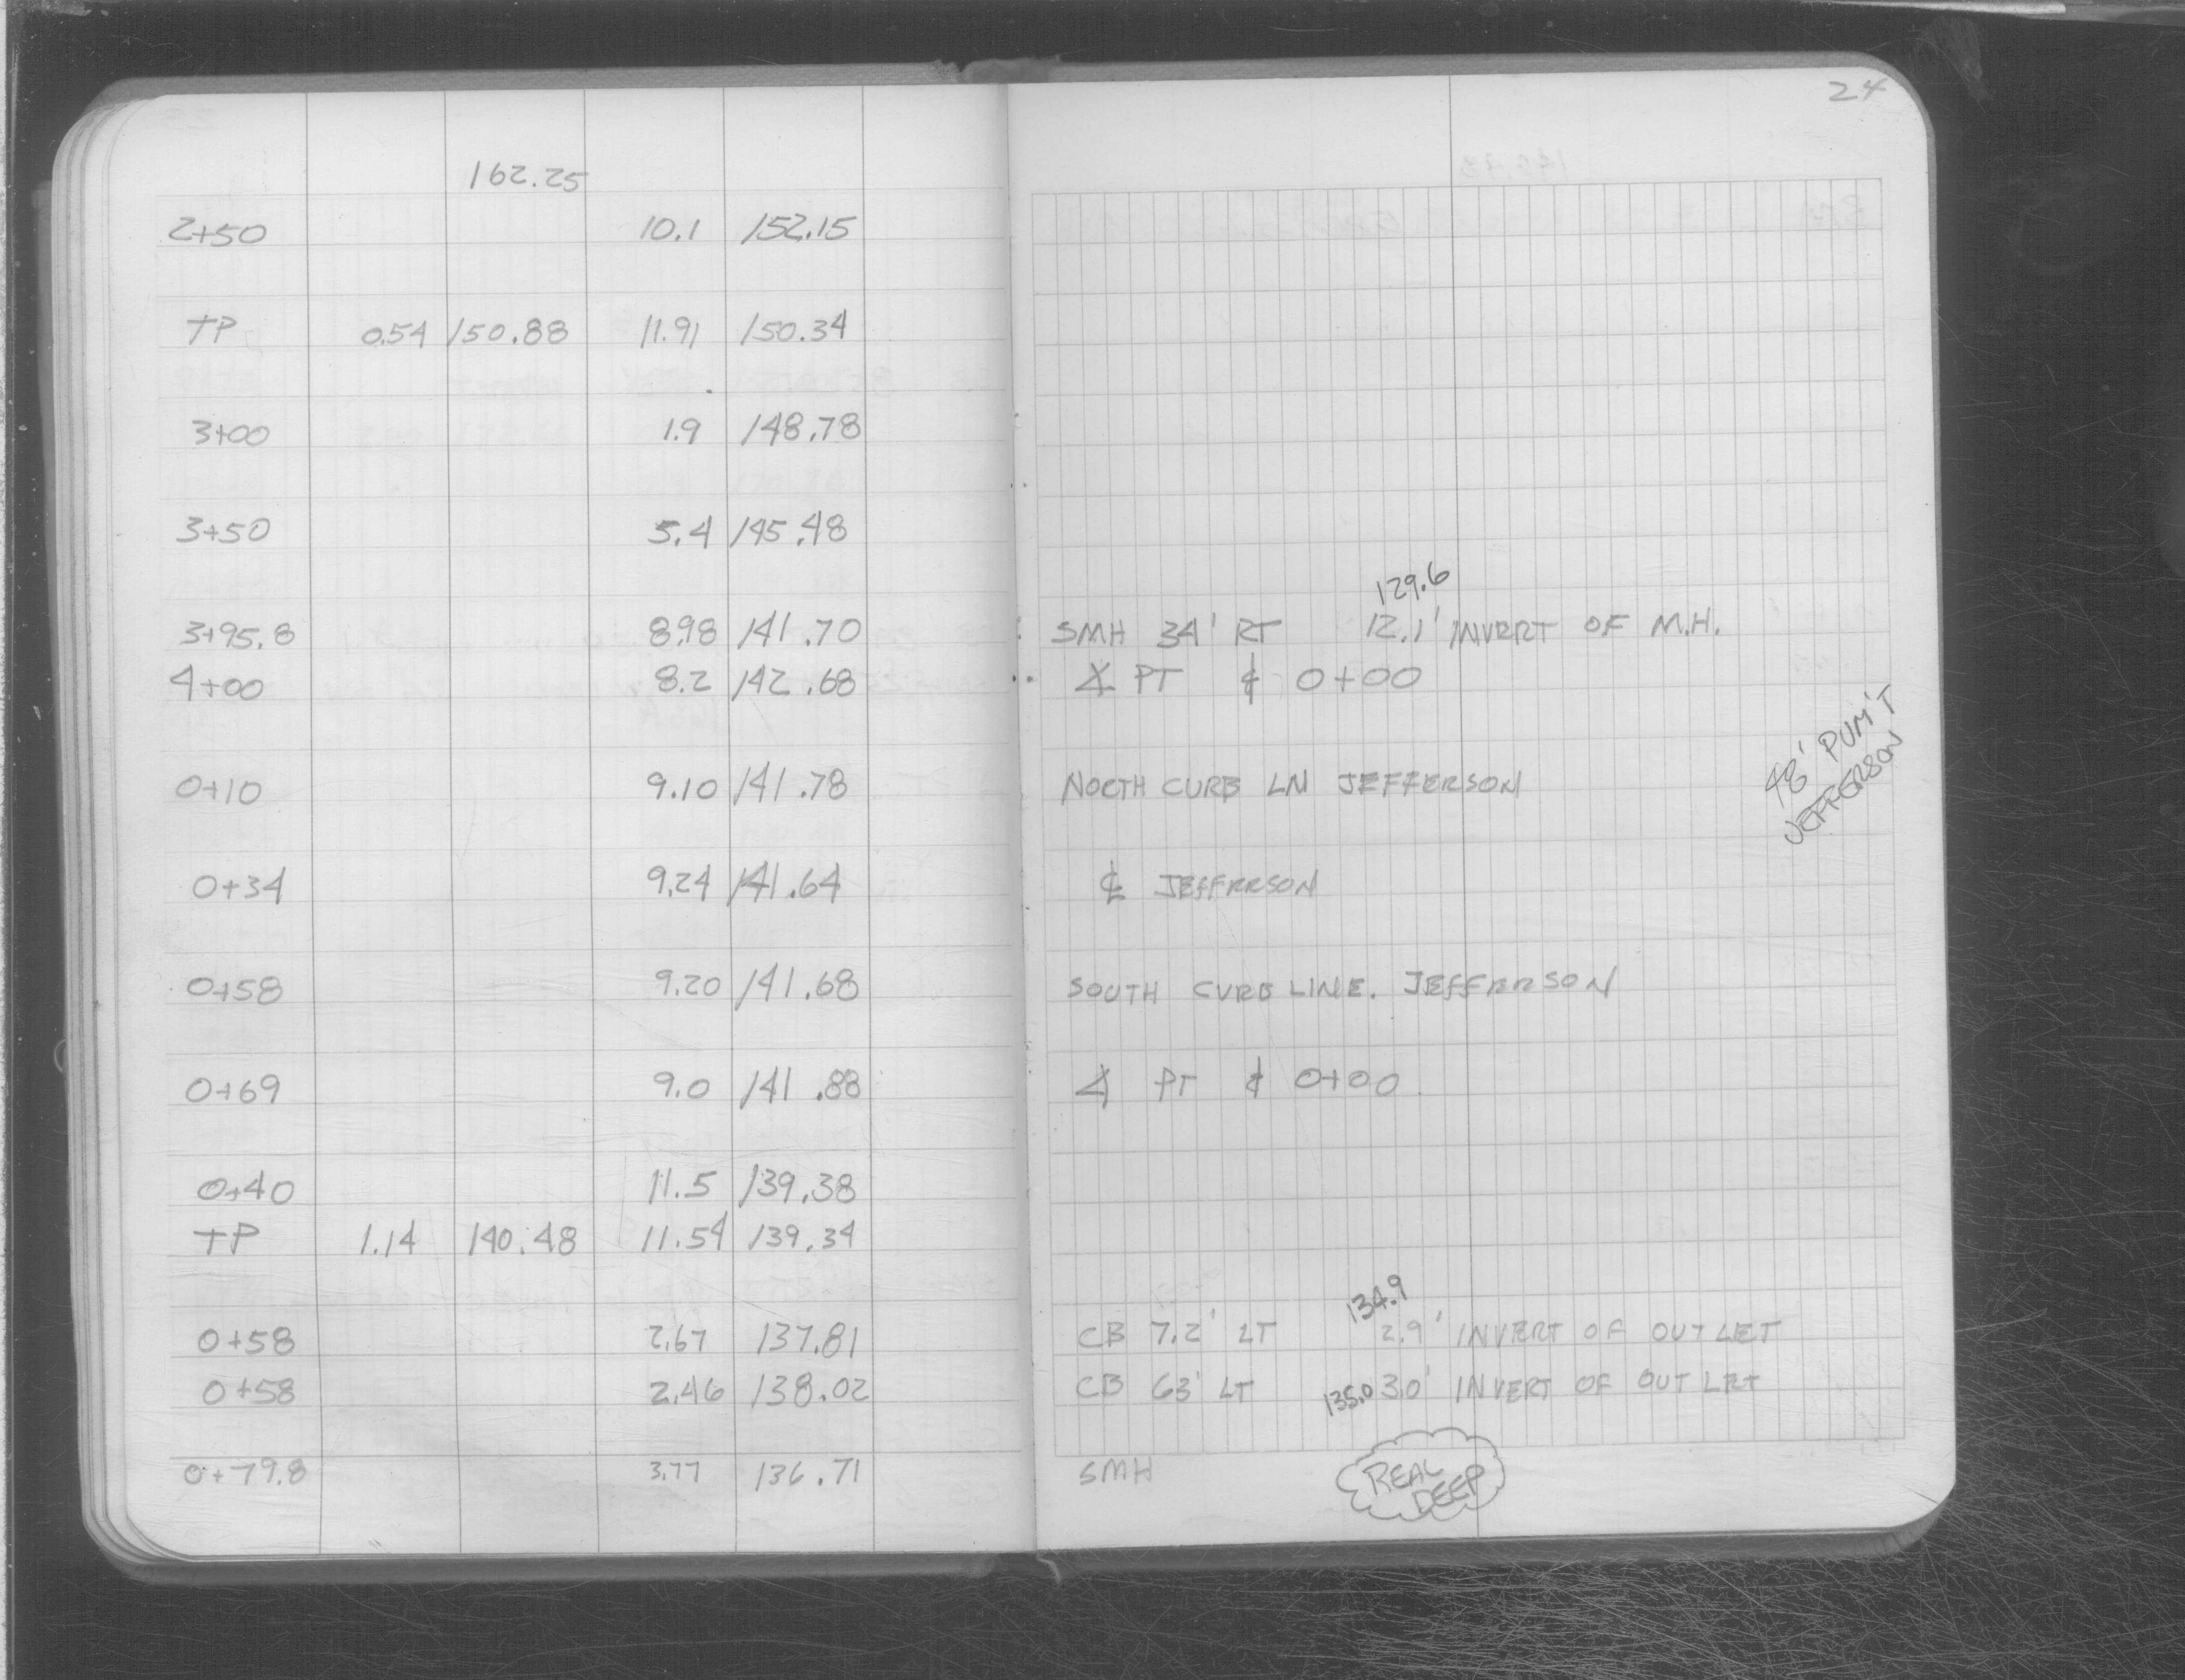 24
162.25
2+50 10.1 152.15
TP 0.54 150.88 11.91 150.34
3+00 1.9 148.78
3+50 5.4 145.48
129.6
3+95.8 8.98 141.70 SMH 34' RT 12.1' INVERT OF M.H.
4+00 8.2 142.68 ∡ PT ℄ 0+00
48' PVM'T
JEFFERSON
0+10 9.10 141.78 NORTH CURB LN JEFFERSON
0+34 9.24 141.64 ℄ JEFFERSON
0+58 9.20 141.68 SOUTH CURB LINE. JEFFERSON
0+69 9.0 141.88 ∡ PT ℄ 0+00
0+40 11.5 139.38
TP 1.14 140.48 11.54 139.34
134.9
0+58 2.67 137.81 CB 7.2' LT 2.9' INVERT OF OUTLET
0+58 2.46 138.02 CB 63' LT 135.0 3.0' INVERT OF OUTLET
0+79.8 3.77 136.71 SMH REAL
DEEP